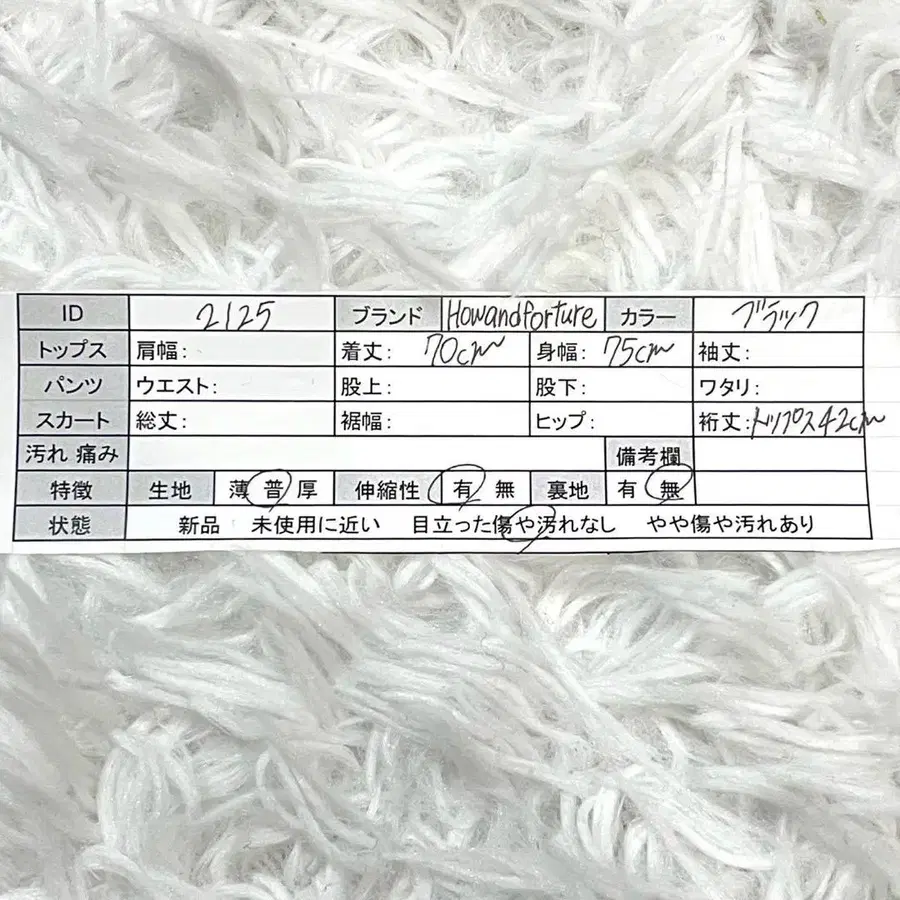 ID 2125 ブランド Howandforture カラー ブラック
トップス 肩幅: 着丈: 70cm 身幅: 75cm 袖丈:
パンツ ウエスト: 股上: 股下: ワタリ:
スカート 総丈: 裾幅: ヒップ: 裄丈: トップス42cm
汚れ 痛み 備考欄
特徴 生地 薄 普 厚 伸縮性 有 無 裏地 有 無
状態 新品 未使用に近い 目立った傷や汚れなし やや傷や汚れあり